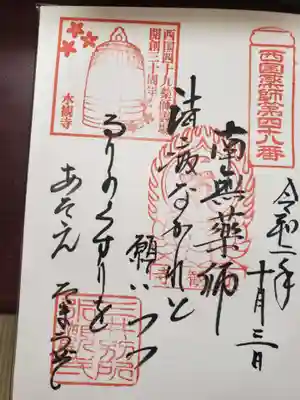 西國薬師第四十八番
令和二
十月三日
南無薬師
なかれと
願いつつ
るりのくすりを
あたえ
西国四十九薬師霊場
開創三十周年
水観寺